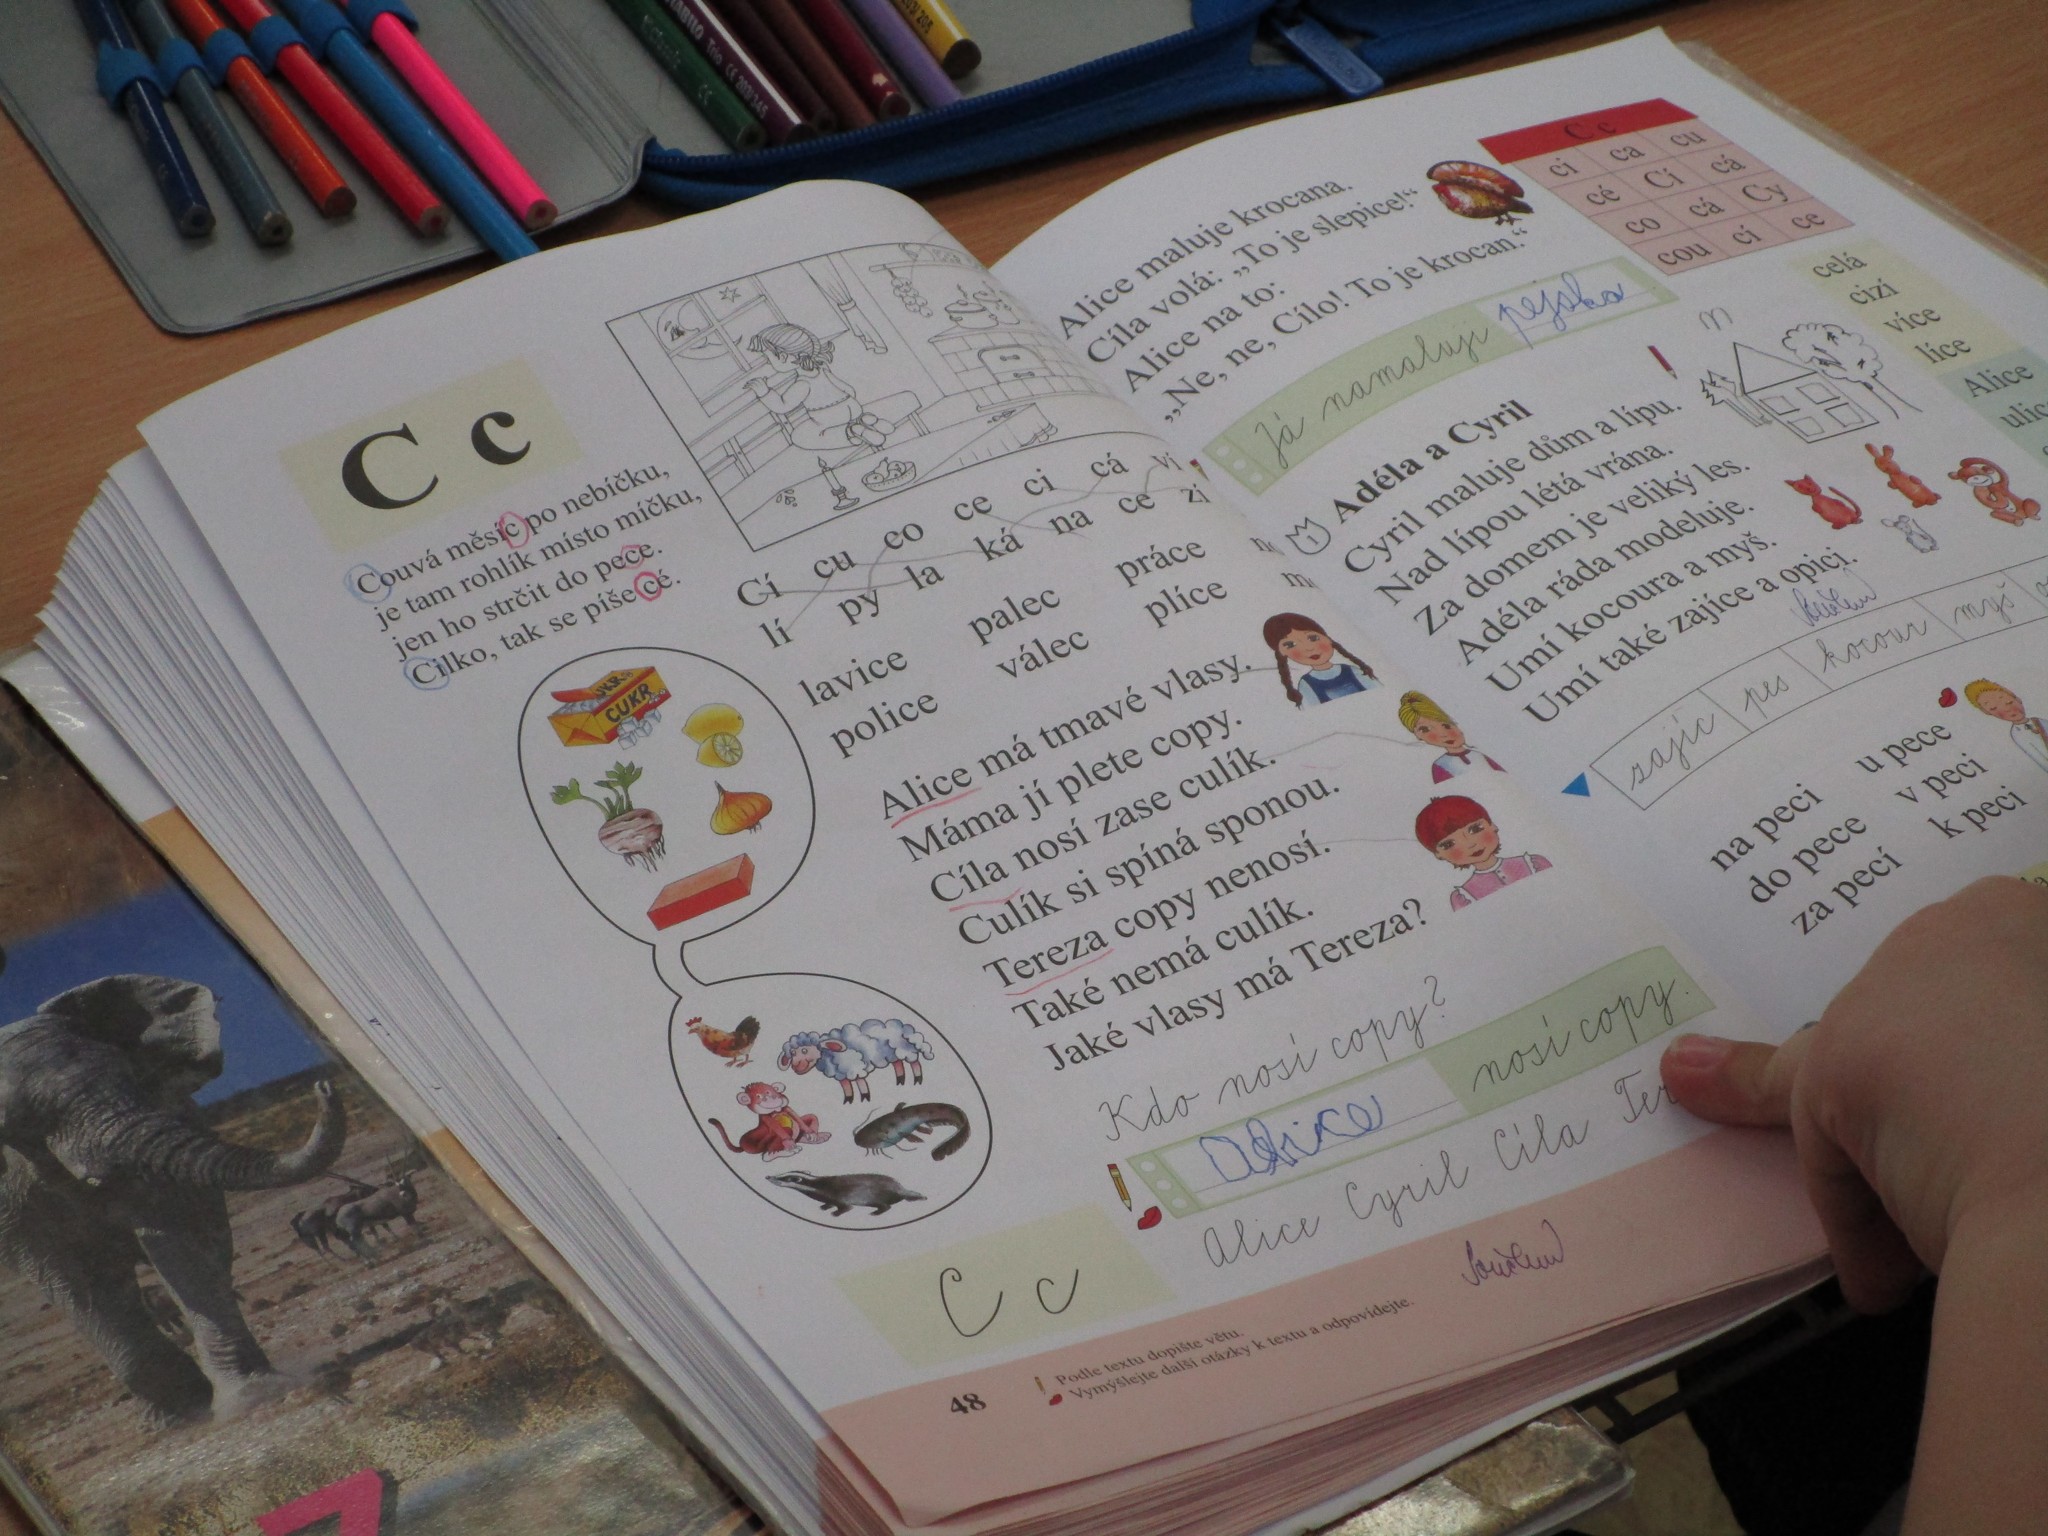 C c
Couvá měsíc po nebíčku,
je tam rohlík místo míčku,
jen ho strčit do pece.
Cilko, tak se píše cé.
CUKR
Cí cu co ce ci cá ví
lí py la ká na ce zi
lavice palec práce
police válec plíce
Alice má tmavé vlasy.
Máma jí plete copy.
Cíla nosí zase culík.
Culík si spíná sponou.
Tereza copy nenosí.
Také nemá culík.
Jaké vlasy má Tereza?
Kdo nosí copy?
Alice nosí copy.
Alice Cyril Cíla Ter
C c
48
Podle textu dopište větu.
Vymýšlejte další otázky k textu a odpovídejte.
Alice maluje krocana.
Cíla volá: „To je slepice!“
Alice na to:
„Ne, ne, Cílo! To je krocan.“
Já namaluji pejska
C c
ci ca cu
cé Cí cá
co cá Cy
cou cí ce
celá
cizí
více
líce
Alice
Adéla a Cyril
Cyril maluje dům a lípu.
Nad lípou létá vrána.
Za domem je veliký les.
Adéla ráda modeluje.
Umí kocoura a myš.
Umí také zajíce a opici.
zajíc pes kocour myš
na peci u pece
do pece v peci
za pecí k peci